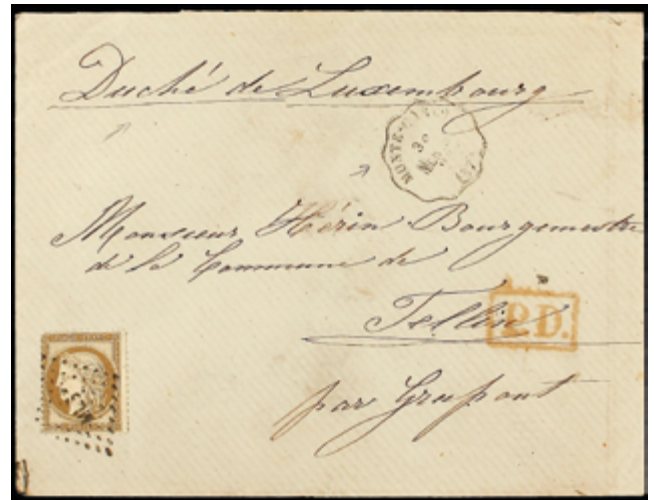 Duché de Luxembourg
MONTE-
30
Monsieur Hérin Bourgmestre
de la Commune de
Tellin
P.D.
par Grupont